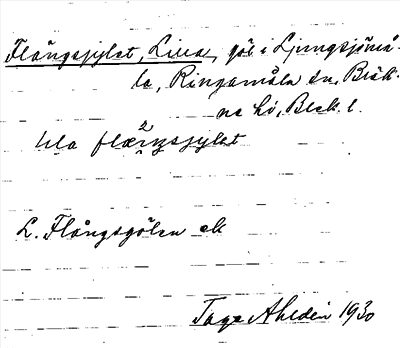 Flångsjylet, Lilla, göl i Ljungsjömå-
la, Ringamåla sn, Bräk-
ne hd, Blek. l.
lilla flængsjylet
L. Flångsgölen ek
Tage Ahldén 1930